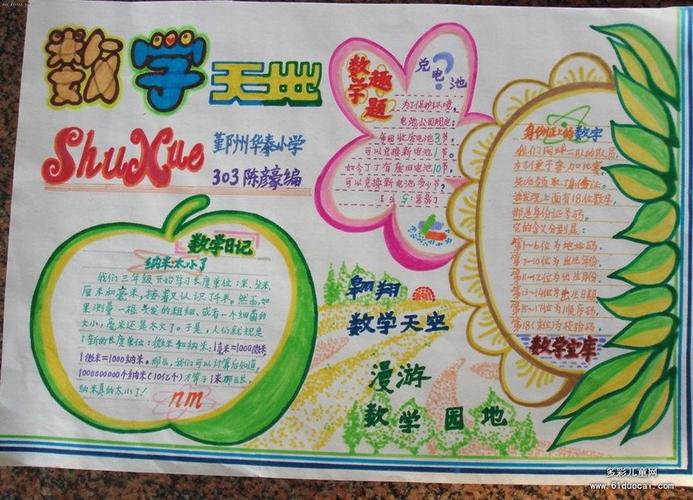 数学天地
ShuXue
鄞州华泰小学
303 陈濠编
数学趣题
兑电池
?
为了保护环境,
电池公司规定:
每回收废电池3节,
可以兑换新电池1节。
如今丁丁有废旧电池10节,
可以兑换新电池多少节?
身份证上的数字
为了便于参加比赛,
我发现上面有18位数字,
那是身份证号码。
它的含义分别是:
第1~6位为地址码。
第7~10位为出生年份。
第11~12位为出生月份。
第13~14位为出生日期。
第15~17位为顺序码。
第18位则为校验码。
数学宝库
数学日记
纳米太小了
我们三年级开始学习长度单位:米、分米、
厘米和毫米,接着又认识了千米。然而,如
果测量一根头发的粗细,或者一个细菌的
大小,毫米还是太大了。于是,人们就规定
了新的长度单位:微米和纳米。1毫米=1000微米,
1微米=1000纳米。那么,我们可以计算后知道,
1000000000个纳米(10亿个)才等于1米那么长,
纳米真的太小了!
nm
翱翔
数学天空
漫游
数学园地
多彩儿童网
www.61duocai.com